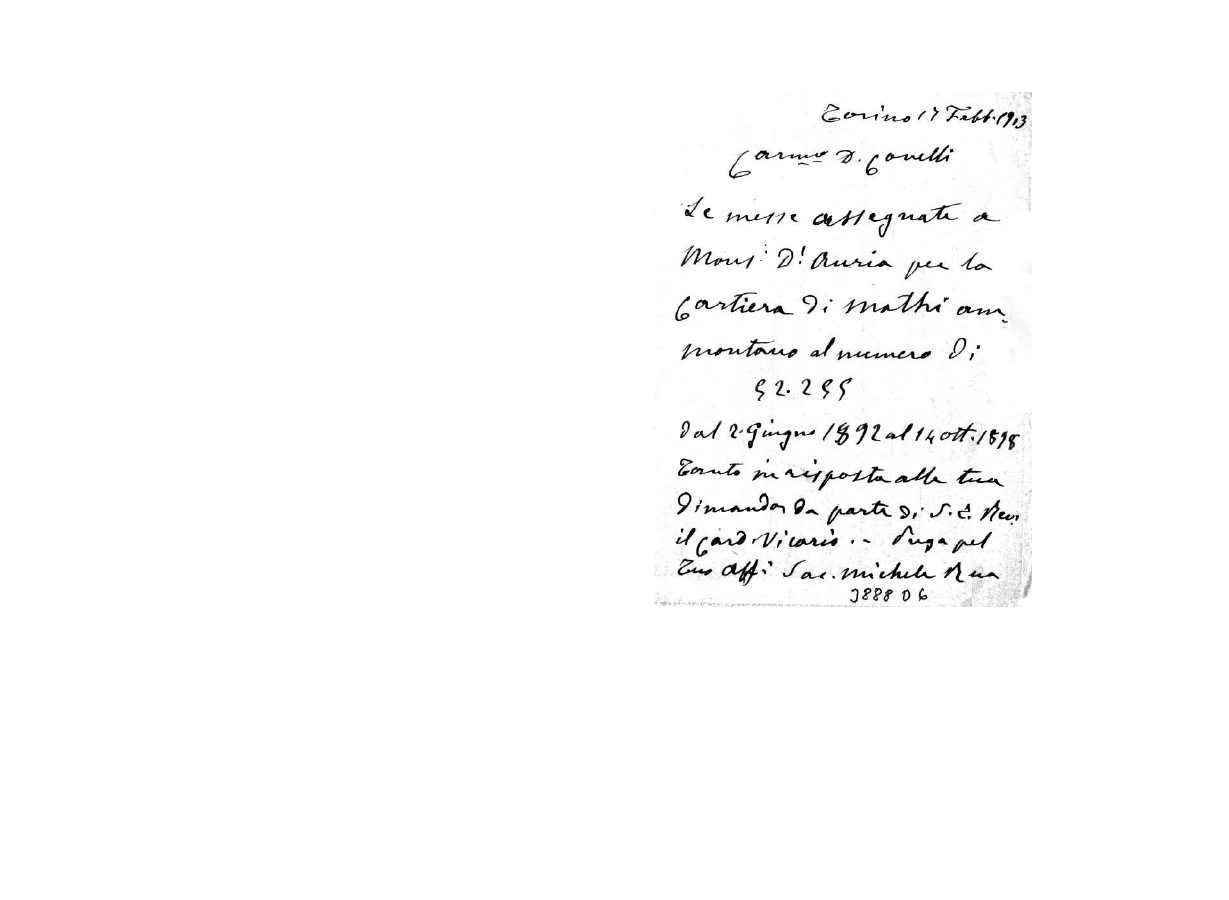 Torino 17 Febb. 1913
Carmo D. Conelli
Le messe assegnate a
Mons: D'Auria per la
Cartiera di Mathi am-
montano al numero di
52.255
dal 2 Giugno 1892 al 14 ott. 1898
Tanto in risposta alla tua
dimanda da parte di S. E. Rev.
il Card. Vicario. - Prega pel
Tuo aff: Sac. Michele Rua
3888 D 6